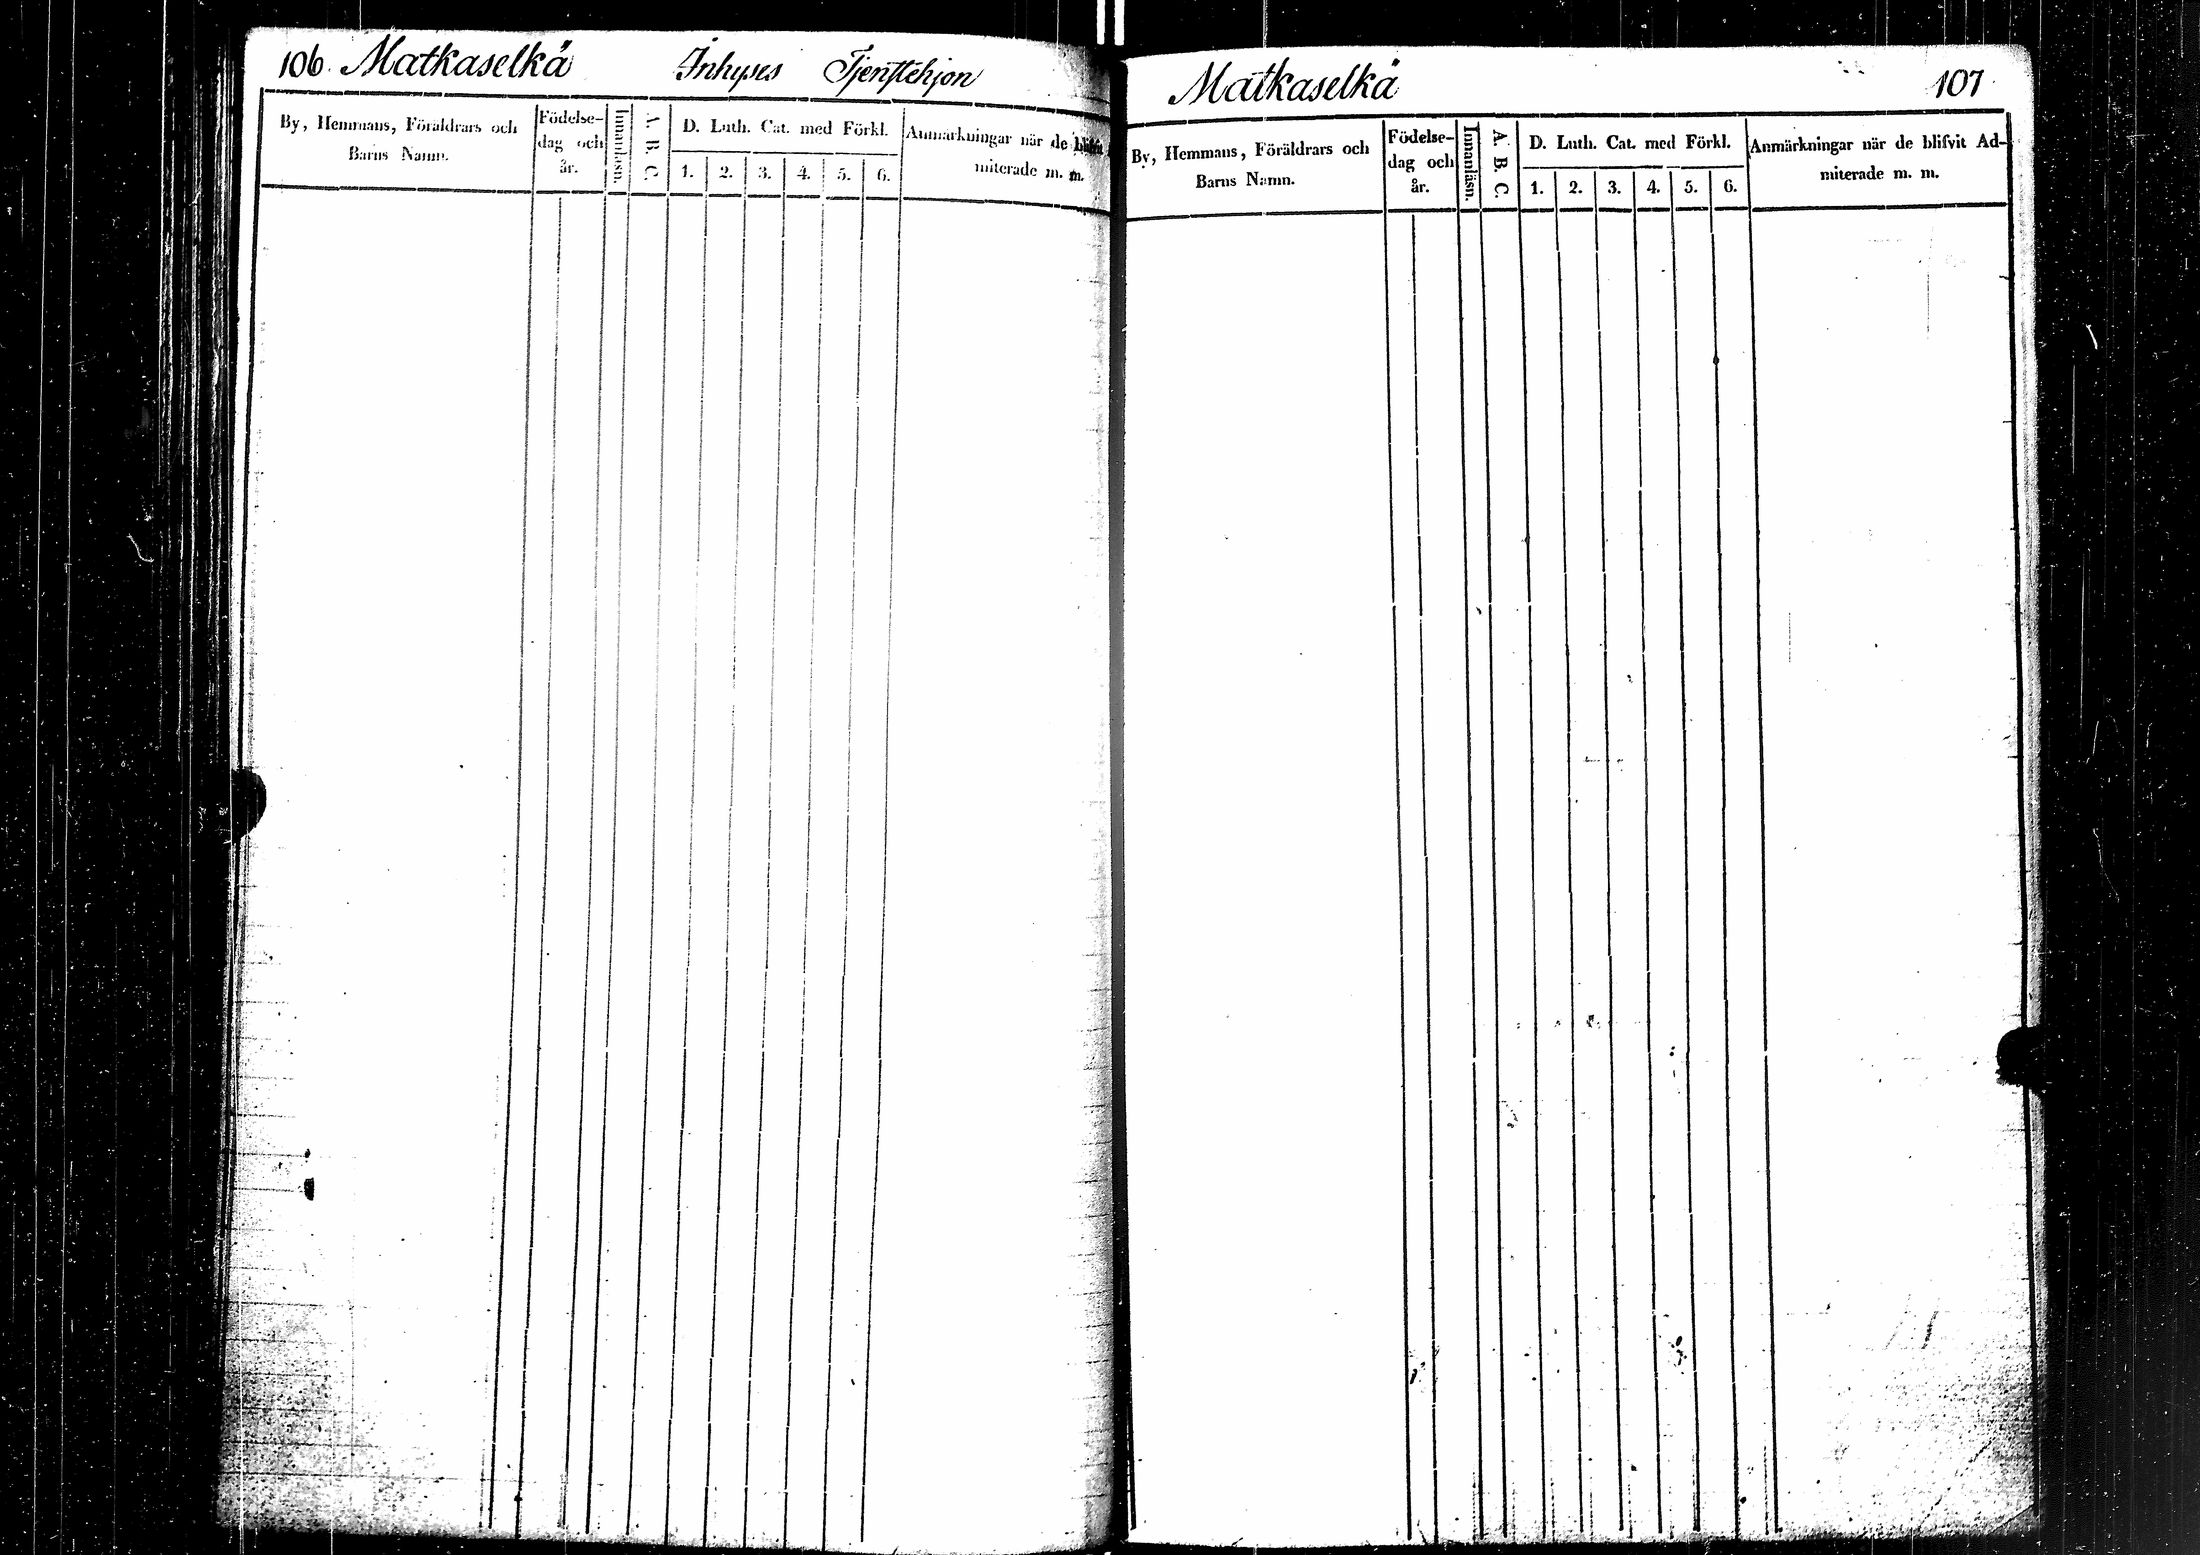 106. Matkaselkä Inhyses Tjenstehjon
By, Hemmans, Föräldrars och
Barns Namn.
Födelse-
dag och
år.
Innanläsn.
A. B. C.
D. Luth. Cat. med Förkl.
1. 2. 3. 4. 5. 6.
Anmärkningar när de blifvit
miterade m. m.
Matkaselkä 107
By, Hemmans, Föräldrars och
Barns Namn.
Födelse-
dag och
år.
Innanläsn.
A. B. C.
D. Luth. Cat. med Förkl.
1. 2. 3. 4. 5. 6.
Anmärkningar när de blifvit Ad-
miterade m. m.